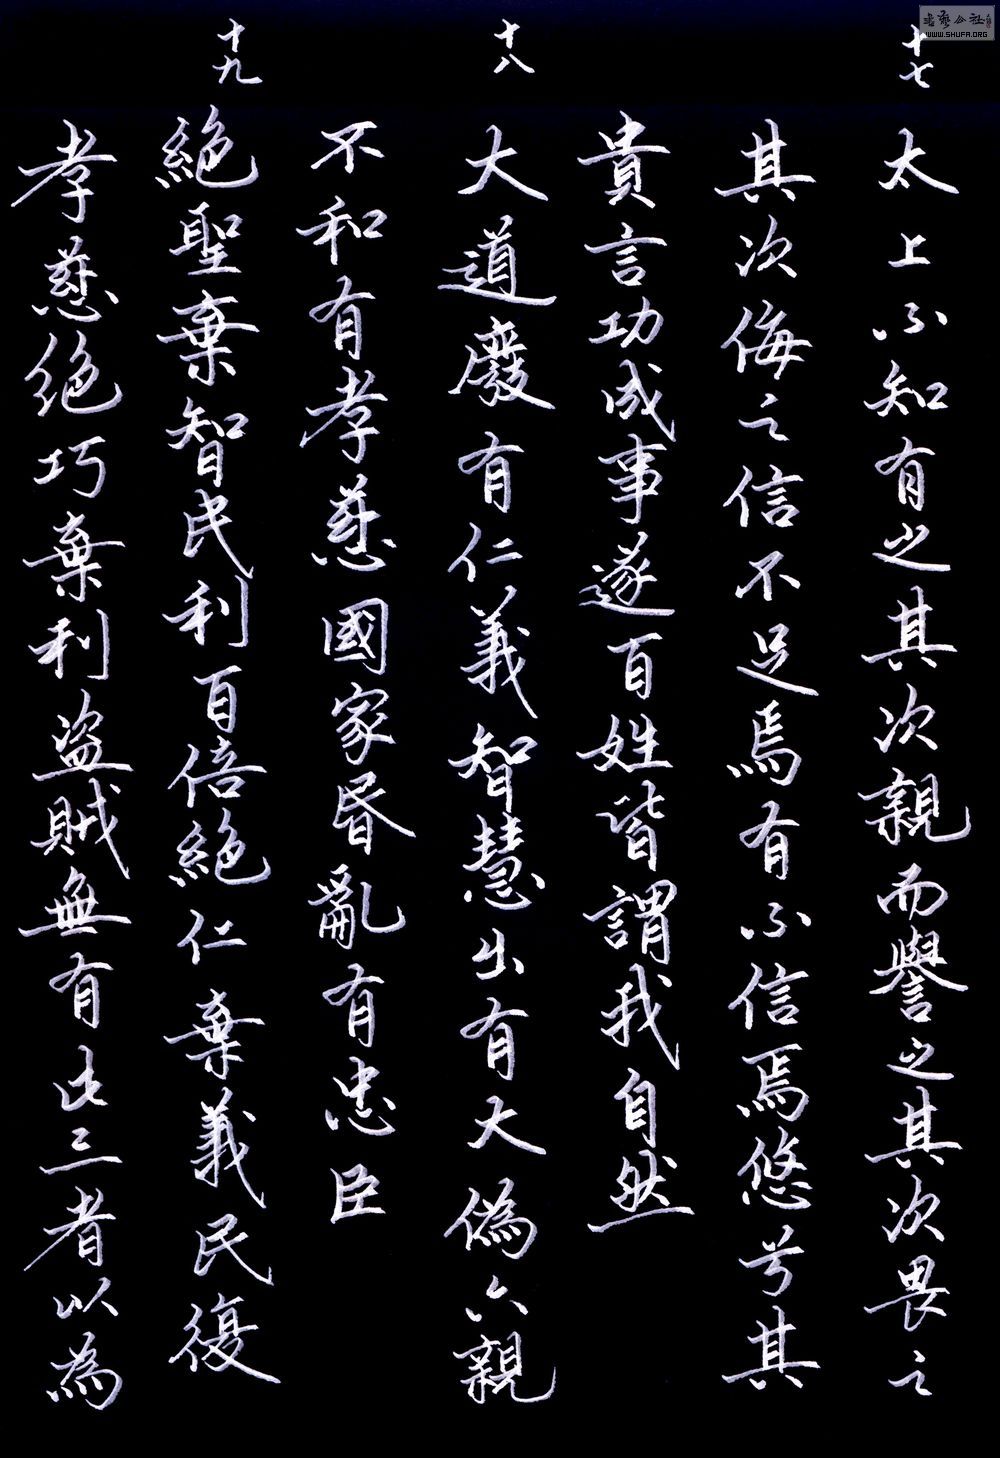 書藝公社
WWW.SHUFA.ORG
十七
太上不知有之其次親而譽之其次畏之
其次侮之信不足焉有不信焉悠兮其
貴言功成事遂百姓皆謂我自然
十八
大道廢有仁義智慧出有大偽六親
不和有孝慈國家昏亂有忠臣
十九
絕聖棄智民利百倍絕仁棄義民復
孝慈絕巧棄利盜賊無有此三者以為